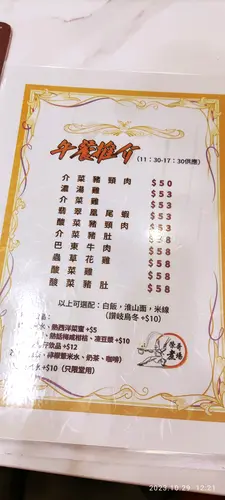 午餐推介 (11:30-17:30供應)
介菜豬頸肉 $50
濃湯雞 $53
介菜雞 $53
翡翠鳳尾蝦 $53
酸菜豬頸肉 $53
介菜豬肚 $58
巴東牛肉 $58
蟲草花雞 $58
酸菜雞 $58
酸菜豬肚 $58
以上可選配:白飯,淮山麵,米線
(讚岐烏冬 +$10)
品:
米水、熱西洋菜蜜 +$5
熱話梅咸柑桔、凍豆漿 +$10
飲品 +$12
檸樂薏米水、奶茶、咖啡)
水 +$10 (只限堂用)
2023.10.29 12:21